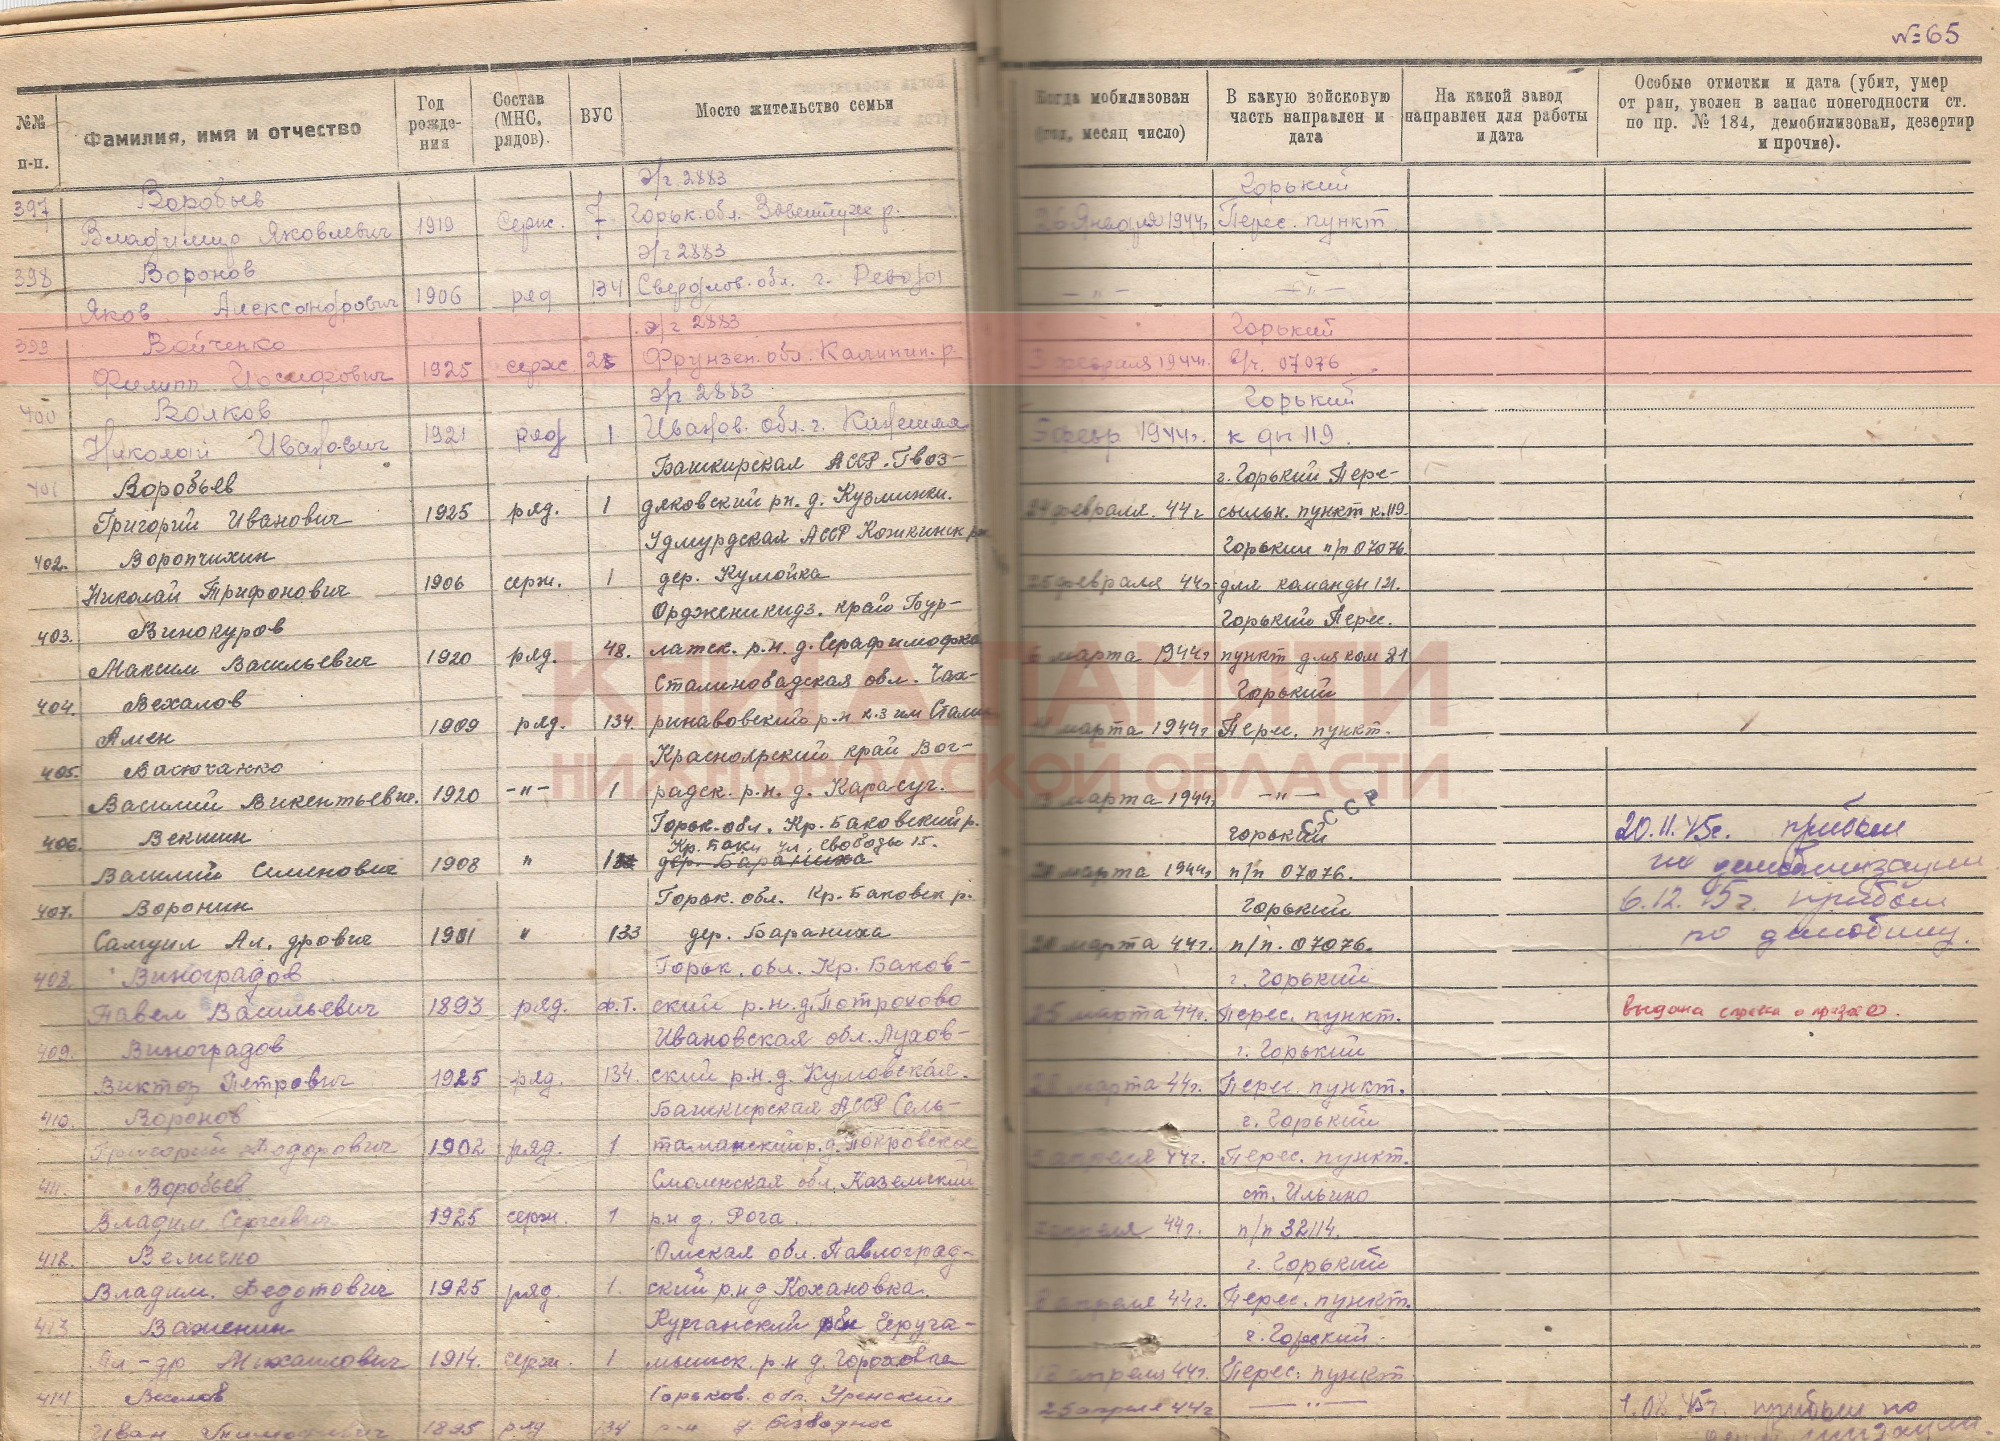 № 65
№№ п-п.
Фамилия, имя и отчество
Год рожде-ния
Состав (МНС, рядов).
ВУС
Мосто жительство семьи
Когда мобилизован (год, месяц число)
В какую войсковую часть направлен и дата
На какой завод направлен для работы и дата
Особые отметки и дата (убит, умер от ран, уволен в запас понегодности ст. по пр. № 184, демобилизован, дезертир и прочие).
397 Воробьев э/г 2883 Горький
Владимир Яковлевич 1919 Серж. 7 Горьк. обл. 26 Января 1944г. Перес. пункт
398 Воронов э/г 2883
Яков Александрович 1906 ряд 134 Свердлов. обл. г. Ревда — " — — " —
399 Войченко э/г 2883 Горький
Филипп Иосифович 1925 серж 25 Фрунзен. обл. Калинин. р. февраля 1944г. в/ч. 07076
400 Волков э/г 2883 Горький
Николай Иванович 1921 ряд 1 Иванов. обл. г. Кинешма 5 февр 1944г. к ды 119.
401 Воробьев Башкирская АССР. Гвоз- г. Горький Пере-
Григорий Иванович 1925 ряд. 1 дяковский рн. д. Кузминки. 24 февраля. 44г сыльн. пункт к. 119.
402. Воропчихин Удмурдская АССР Горький п/п 07076
Николай Трифонович 1906 серж. 1 дер. Кумойка 25 февраля 44г. для команды 121.
403. Винокуров Ордженикидз. край Бур- Горький Перес.
Максим Васильевич 1920 ряд. 48. латск. р.н. д. Серафимофка 6 марта 1944г пункт для ком 21
404. Вехалов Сталиновадская обл. Чах- Горький
Амен 1909 ряд. 134. ринавовский р-н к.з им Сталин марта 1944г Перес. пункт.
405. Васюханко Красноярский край Бог-
Василий Викентьевич. 1920 -"- 1 радск. р.н. д. Карасуг. марта 1944г — " — СССР
406. Векшин Горьк. обл. Кр. Баковский р. горький 20.11.45г. прибыл
Кр. Баки ул. Свободы 15.
Василий Семенович 1908 " дер. Бараниха 20 марта 1944г п/п 07076. по демобилизации
407. Воронин Горьк. обл. Кр. Баковск р. Горький 6.12.45г. прибыл
Самуил Ал. дрович 1901 " 133 дер. Бараниха 20 марта 44г. п/п. 07076. по демобилиз.
408. Виноградов Горьк. обл. Кр. Баков- г. Горький
Павел Васильевич 1893 ряд. ф.т. ский р.н. д. Потрохово 25 марта 44г. Перес. пункт. выдана справка о призыве.
409. Виноградов Ивановская обл. Лухов- г. Горький
Виктор Петрович 1925 ряд. 134. ский р.н. д. Кумовская. марта 44г. Перес. пункт.
410. Воронов Башкирская АССР Сель- г. Горький
Григорий Федорович 1902 ряд. 1 таманский р. д. Покровское 5 апреля 44г. Перес. пункт.
411. Воробьев Смоленская обл. Каземский ст. Ильино
Владим. Сергеевич 1925 серж. 1 р.н д. Рога. апреля 44г. п/п 32114.
412. Величко Омская обл. Павлоград- г. Горький
Владим. Федотович 1925 ряд. 1. ский р.н д Кохановка. 8 апреля 44г. Перес. пункт.
413 Важенин Курганский г. Горький.
Ал-др Михаилович 1914. серж. 1 мышск. р.н д. апреля 44г. Перес. пункт
414 Горьков. обл. Уренский 25 апреля 44г — " — 1.08.45г. прибыл по
Иван 1895 ряд 134 р-н д. Безводное
КНИГА ПАМЯТИ
НИЖЕГОРОДСКОЙ ОБЛАСТИ